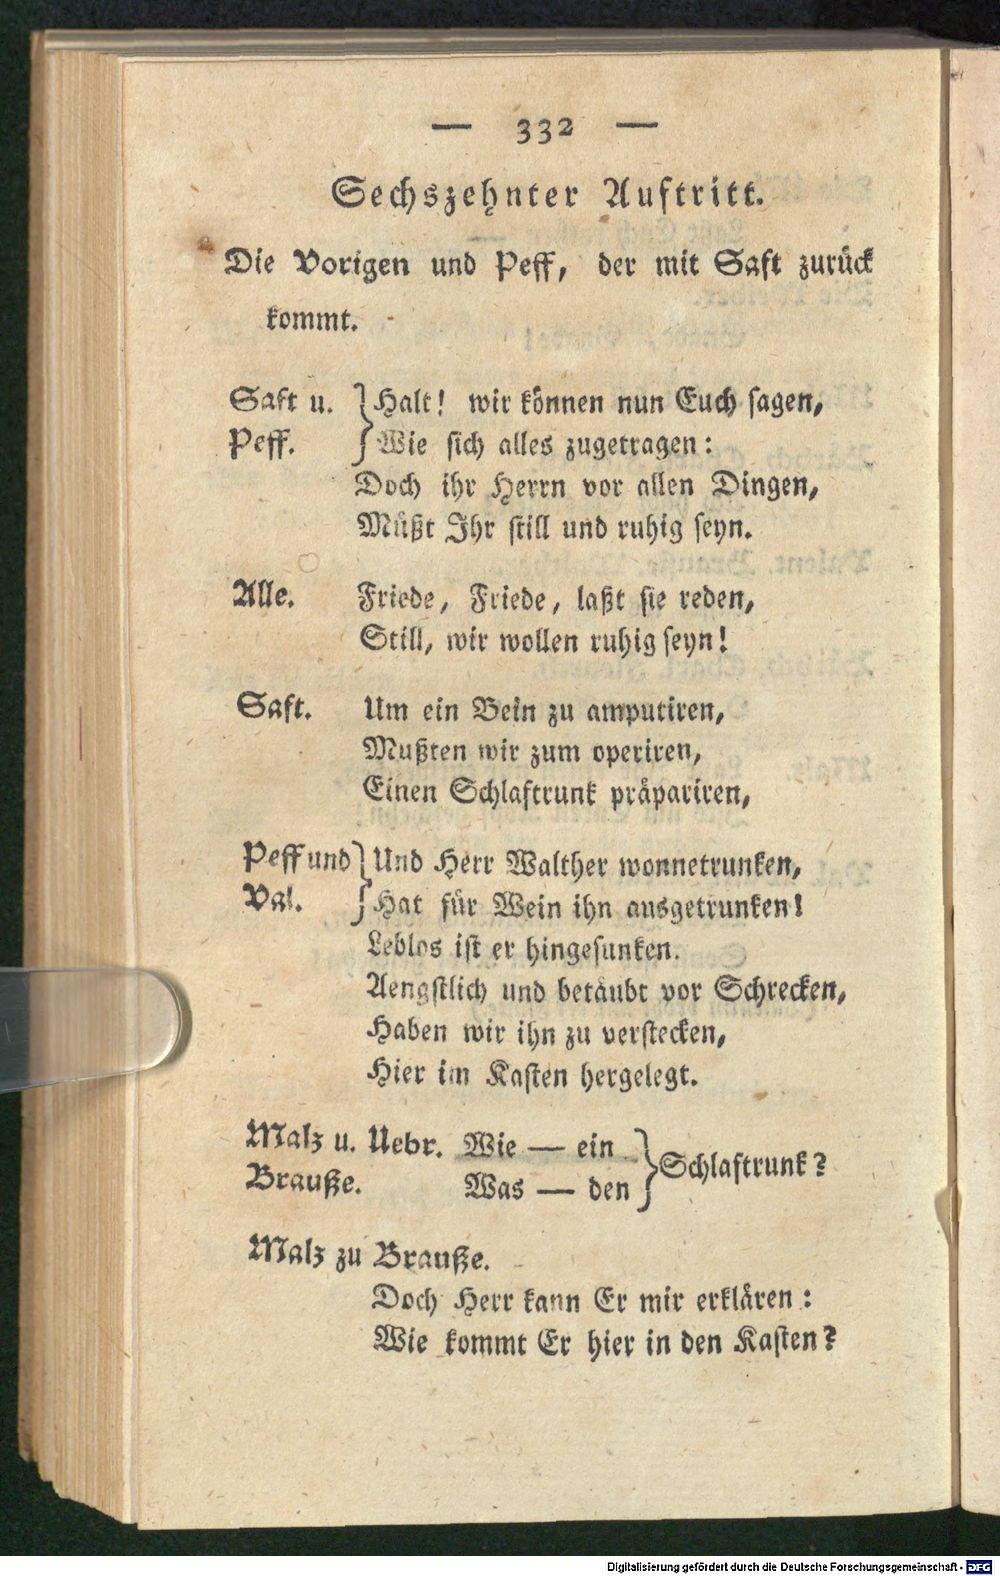 — 332 —
Sechszehnter Auftritt.
Die Vorigen und Peff, der mit Saft zurück
kommt.
Saft u. } Halt! wir können nun Euch sagen,
Peff. } Wie sich alles zugetragen:
Doch ihr Herrn vor allen Dingen,
Müßt Ihr still und ruhig seyn.
Alle. Friede, Friede, laßt sie reden,
Still, wir wollen ruhig seyn!
Saft. Um ein Bein zu amputiren,
Mußten wir zum operiren,
Einen Schlaftrunk präpariren,
Peff und } Und Herr Walther wonnetrunken,
Val. } Hat für Wein ihn ausgetrunken!
Leblos ist er hingesunken.
Aengstlich und betäubt vor Schrecken,
Haben wir ihn zu verstecken,
Hier im Kasten hergelegt.
Malz u. Uebr. Wie — ein } Schlaftrunk?
Brauße. Was — den }
Malz zu Brauße.
Doch Herr kann Er mir erklären:
Wie kommt Er hier in den Kasten?
Digitalisierung gefördert durch die Deutsche Forschungsgemeinschaft - DFG